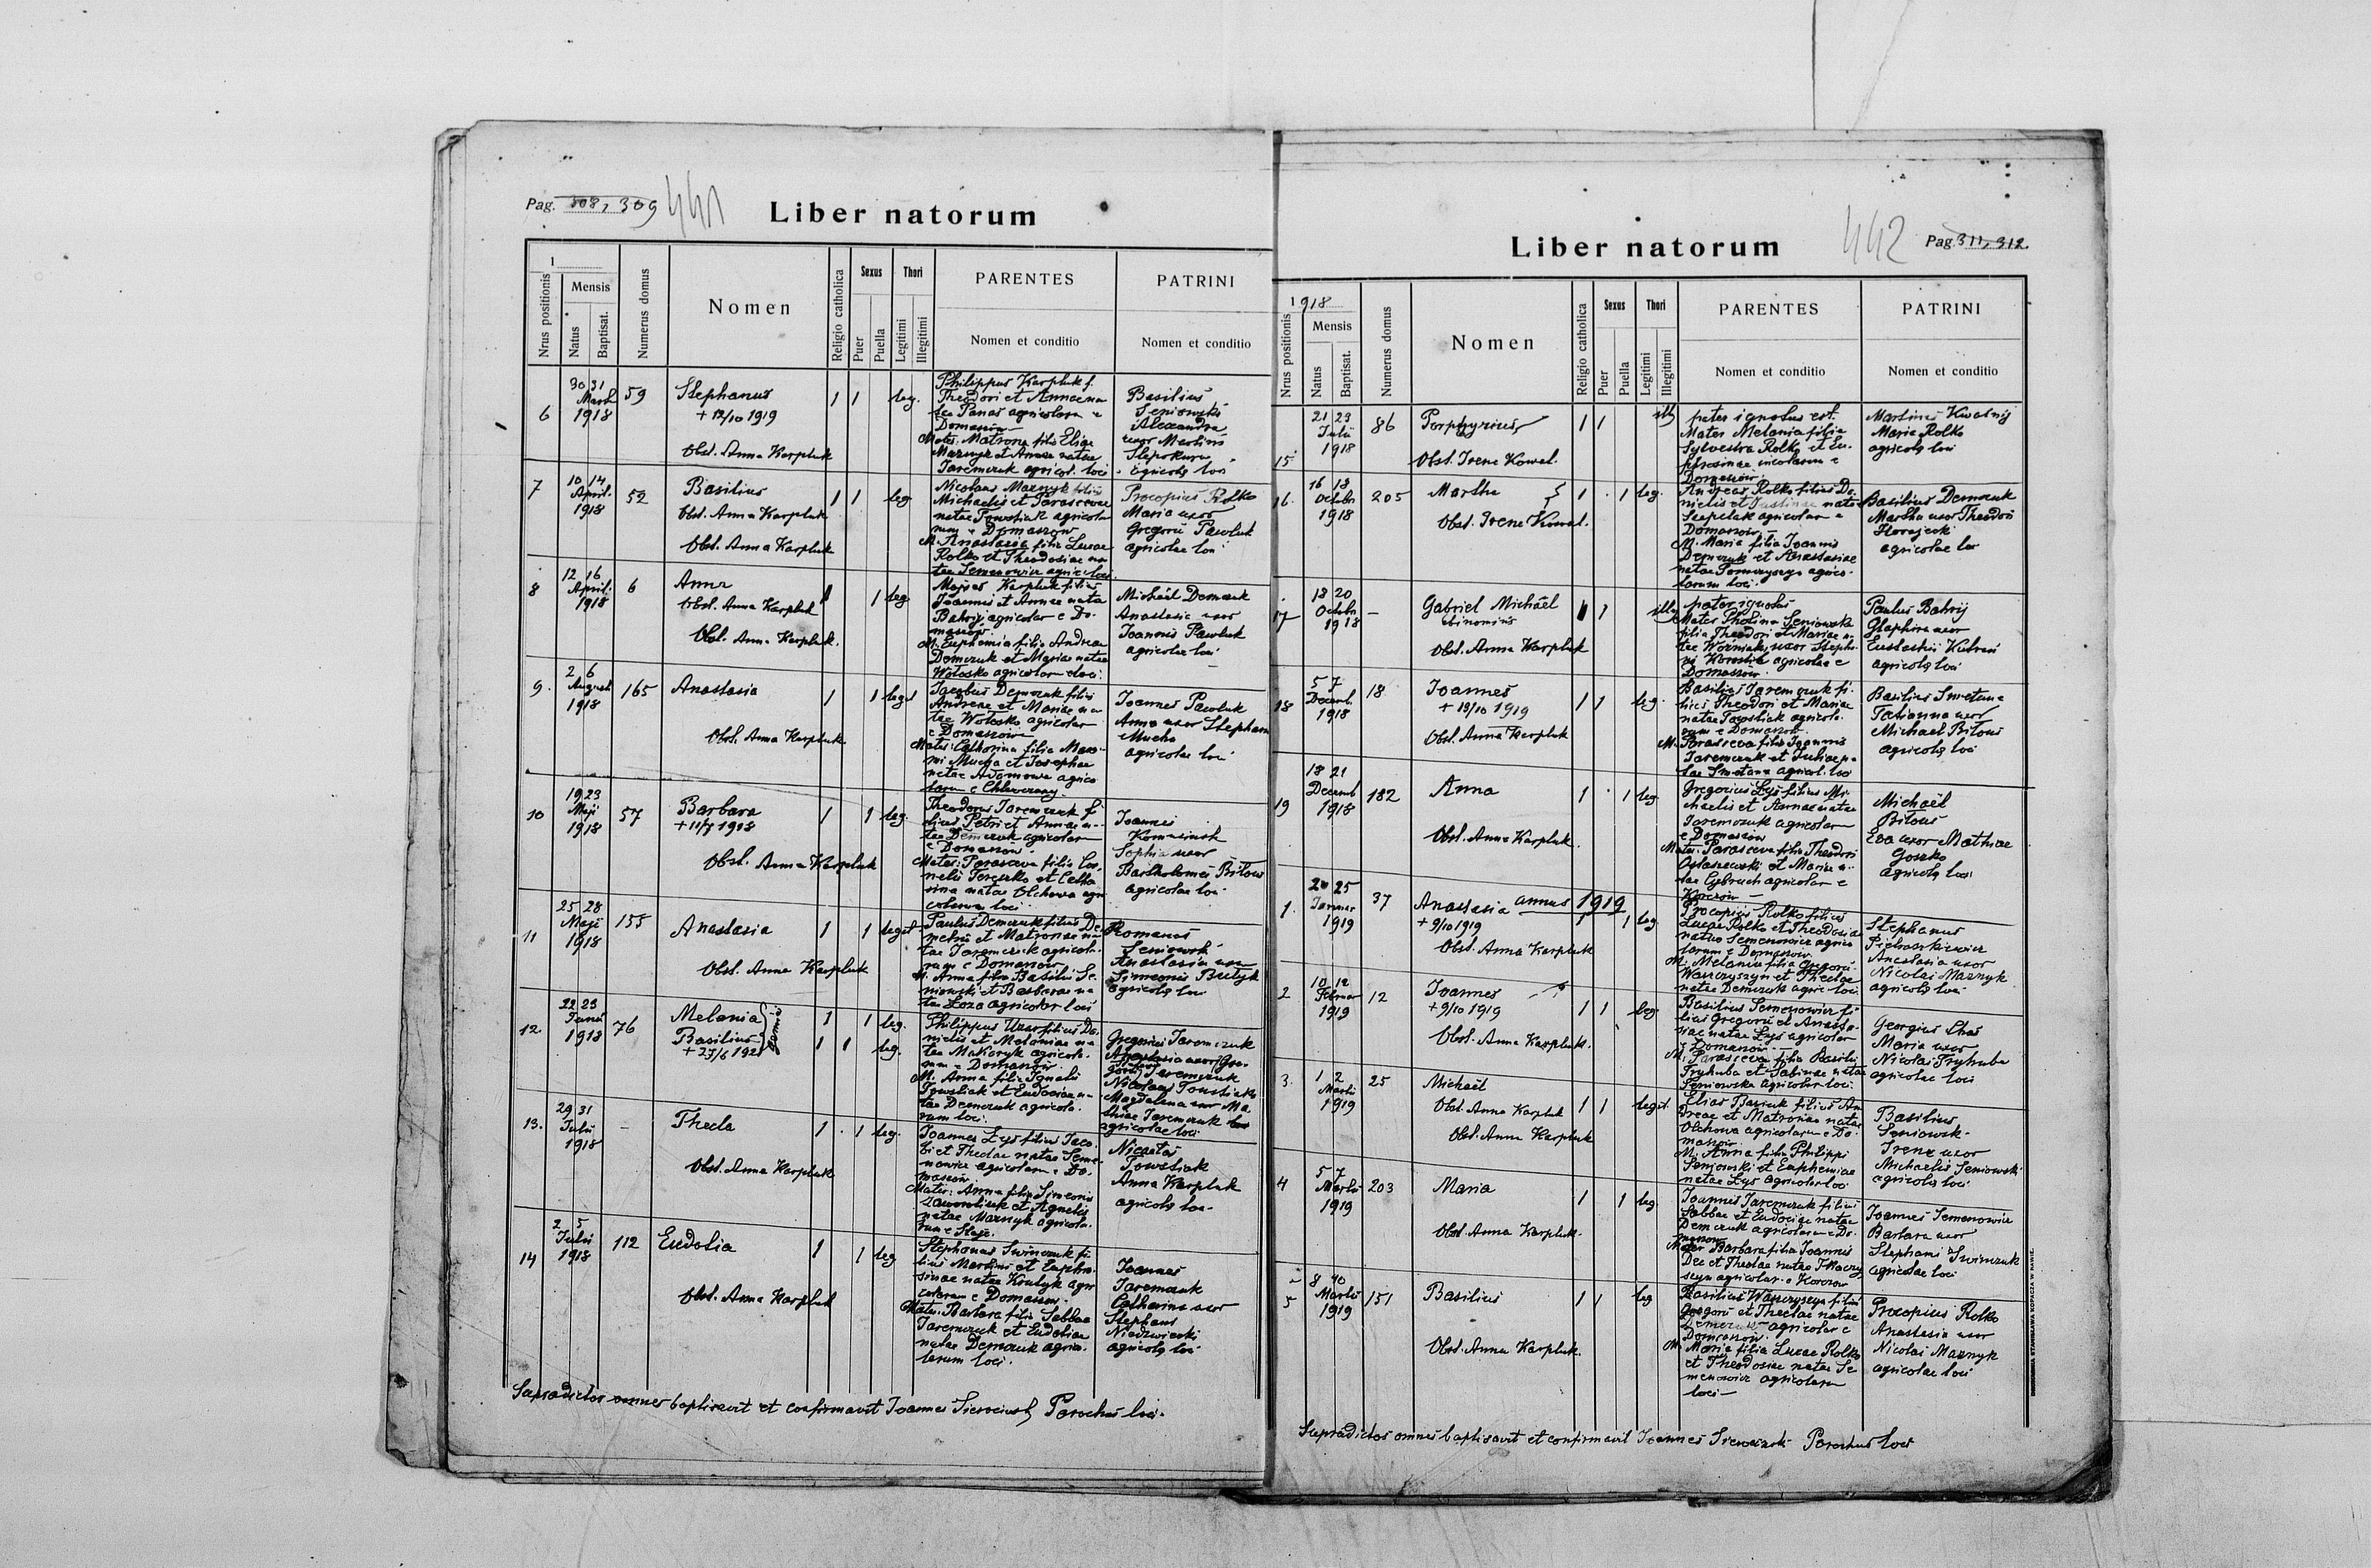 Pag. 308, 309 441
Liber natorum
1
Nrus positionis
Mensis
Natus
Baptisat.
Numerus domus
Nomen
Religio catholica
Sexus
Puer
Puella
Thori
Legitimi
Illegitimi
PARENTES
Nomen et conditio
PATRINI
Nomen et conditio
6
30 31
1918
59
Stephanus
+ 12/10 1919
Obst. Anna Karpluk
1 1 leg.
Philippus Karpluk f.
Theodori et Annae na
tae Panas agricolarum e
Domaszów
Mater: Matrona filia Eliae
Maznyk et Annae natae
Jaremczuk agricol. loci
Basilius
Seniowski
Alexandra
uxor Martini
agricolae loci
7
10 14
April.
1918
52
Basilius
Obst. Anna Karpluk
Obst. Anna Karpluk
1 1 leg
Nicolaus Maznyk filius
Michaelis et Parascevae
natae Towstiak agricola
rum e Domaszów
M. Anastasia filia Lucae
Rolko et Theodosiae na
tae Semenowicz agric. loci
Procopius Rolko
Maria uxor
Gregorii Pawluk
agricolae loci
8
12 16
April.
1918
6
Anna
Obst. Anna Karpluk
Obst. Anna Karpluk.
1 1 leg
Mojses Karpluk filius
Joannis et Annae nata
Bahrij agricolar e Do-
maszów.
M. Euphemia filia Andreae
Demczuk et Mariae natae
Wołosko agricolarum loci.
Michaël Demczuk
Anastasia uxor
Joannis Pawluk
agricolae loci
9.
2 6
August
1918
165
Anastasia
Obst. Anna Karpluk.
1 1 legit
Jacobus Demczuk filius
Andreae et Mariae na
tae Wołosko agricolar
e Domaszów
Mater: Catharina filia Maxi-
mi Mucha et Josephae
natae Adamowa agrico
larum e
Joannes Pawluk
Anna uxor Stephani
Mucha
agricolae loci
10
19 23
Maji
1918
57
Barbara
+ 11/7 1918
Obst. Anna Karpluk
1 1 leg.
Theodorus Jaremczuk f
ilius Petri et Annae na-
tae Demczuk agricolar
e Domaszów.
Mater: Parasceva filia Cor
nelii et Catha
rina natae Olchowa agri
colarum loci
Joannes
Sophia uxor
Bartholomei Biłous
agricolae loci
11
25 28
Maji
1918
155
Anastasia
Obst. Anna Karpluk
1 1 legit
Paulus Demczuk filius De
metrii et Matronae na
tae Jaremczuk agricola
rum e Domaszów
M. Anna filia Basilii Se
niowski et Barbarae na
tae Łoza agricolar loci
Romanus
Seniowski
Anastasia uxor
Simeonis Butyk
agricolae loci
12.
22 23
Junii
1918
76
Melania
Basilius
+ 27/6 1921
gemini
1 1 leg.
1 1 leg.
Philippus Uzar filius Da
nielis et Melaniae na
tae Makaryk agricola
rum e Domaszów.
M. Anna filia Ignatii
Towstiak et Eudociae na-
tae Demczuk agricola-
rum loci.
Gregorius Jaremczuk
Anastasia uxor Gre-
gorii Jaremczuk
Nicolaus Towstiak
Magdalena uxor Ma
thiae Jaremczuk
agricolae loci
13.
29 31
Julii
1918
–
Thecla
Obst. Anna Karpluk
1 1 leg.
Joannes Łys filius Jaco
bi et Theclae natae Seme
nowicz agricolarum e Do-
maszów.
Mater: Anna filia Simeonis
et Agnetis
natae Maznyk agricola-
rum e Staje.
Nicetas
Towstiak
Anna Karpluk
agricolae loci
14
2 5
Julii
1918
112
Eudokia
Obst. Anna Karpluk
1 1 leg
Stephanus Swinczuk fi
lius Martini et Euphro-
sinae natae agri
colarum e Domaszów.
Mater: Barbara filia Sabbae
Jaremczuk et Eudokiae
natae Demczuk agrico-
larum loci.
Joannes
Jaremczuk
Catharina uxor
Stephani
Niedzwiecki
agricolae loci
Supradictos omnes baptisavit et confirmavit Joannes Sierociuski Parochus loci.
Liber natorum
442 Pag. 311, 312.
1918
Nrus positionis
Mensis
Natus
Baptisat.
Numerus domus
Nomen
Religio catholica
Sexus
Puer
Puella
Thori
Legitimi
Illegitimi
PARENTES
Nomen et conditio
PATRINI
Nomen et conditio
15
21 23
Julii
1918
86
Porphyrius
Obst. Irene Kowal.
1 1 ill
pater ignotus est.
Mater Melania filia
Sylvestra Rolko et Eu-
phrosinae incolarum e
Domaszów
Martinus Kwasnij
Maria Rolko
agricolae loci
16.
16 18
Octobr
1918
205
Martha
Obst. Irene Kowal.
1 1 leg.
Andreas Rolko filius Da-
nielis et Justinae nata
agricolar e
Domaszów.
M. Maria filia Joannis
Demczuk et Anastasiae
natae agrico-
larum loci.
Basilius Demczuk
Martha uxor Theodori
agricolae loci
17
18 20
Octobr
1918
–
Gabriel Michaël
binominis
Obst. Anna Karpluk
1 1 ill
pater ignotus
Mater Photina Seniowska
filia Theodori et Mariae na-
tae Woźniak, uxor Stepha-
ni agricolae e
Domaszów.
Paulus Bahrij
Glaphira uxor
Eustachii
agricolae loci
18
5 7
Decemb.
1918
18
Joannes
+ 13/10 1919
Obst. Anna Karpluk
1 1 leg.
Basilius Jaremczuk fi-
lius Theodori et Mariae
natae Towstiak agricola-
rum e Domaszów.
M. Parasceva filia Joannis
Jaremczuk et Juliae na-
tae Smetana agricol. loci
Basilius Smetana
Tatianna uxor
Michaël Biłous
agricolae loci
19
18 21
Decemb
1918
182
Anna
Obst. Anna Karpluk.
1 1 leg
Gregorius Łys filius Mi-
chaelis et Annae natae
Jaremczuk agricolarum
e Domaszów
Mater: Parasceva filia Theodori
Ostaszewski et Mariae na-
tae Cybruch agricolar e
Korczów
Michaël
Biłous
Eva uxor Mathiae
Goszko
agricolae loci
annus 1919
1.
25
Januar
1919
37
Anastasia
+ 9/10 1919
Obst. Anna Karpluk
1 1 leg
Procopius Rolko filius
Lucae Rolko et Theodosiae
natae Semenowicz agrico
larum e Domaszów.
M. Melania filia Gregorii
Waszczyszyn et Theclae
natae Demczuk agric. loci
Stephanus
Pietraszkiewicz
Anastasia uxor
Nicolai Maznyk
agricolae loci
2
10 12
Februar
1919
12
Joannes
+ 9/10 1919
Obst. Anna Karpluk.
1 1 leg
Basilius Semenowicz fi-
lius Gregorii et Anasta-
siae natae Łys agricolar
e Domaszów
M. Parasceva filia Basilii
Tryhuba et Sabinae natae
Seniowska agricolar loci.
Georgius
Maria uxor
Nicolai Tryhuba
agricolae loci
3.
1 2
Martii
1919
25
Michaël
Obst. Anna Karpluk
Obst. Anna Karpluk
1 1 legit.
Elias Baszuk filius An
dreae et Matronae natae
Olchowa agricolarum e Do-
maszów.
M. Anna filia Philippi
Seniowski et Euphemiae
natae Łys agricolar loci
Basilius
Seniowsk-
Irene uxor
Michaelis Seniowski
agricolae loci
4
5 7
Martii
1919
203
Maria
Obst. Anna Karpluk.
1 1 leg.
Joannes Jaremczuk filius
Sabbae et Eudociae natae
Demczuk agricolarum e Do-
maszów
Mater Barbara filia Joannis
Dec et Theclae natae Tkaczy
szyn agricolar. e Korczow
Joannes Semenowicz
Barbara uxor
Stephani Swinczuk
agricolae loci
5
8 10
Martii
1919
151
Basilius
Obst. Anna Karpluk.
1 1 leg
Basilius Waszczyszyn filius
Gregorii et Theclae natae
Demczuk agricolar e
Domaszów.
M. Maria filia Lucae Rolko
et Theodosiae natae Se
menowicz agricolarum
loci
Procopius Rolko
Anastasia uxor
Nicolai Maznyk
agricolae loci
Supradictos omnes baptisavit et confirmavit Joannes Sierociuski Parochus loci
DRUKARNIA STANISŁAWA KOPACZA W RAWIE.